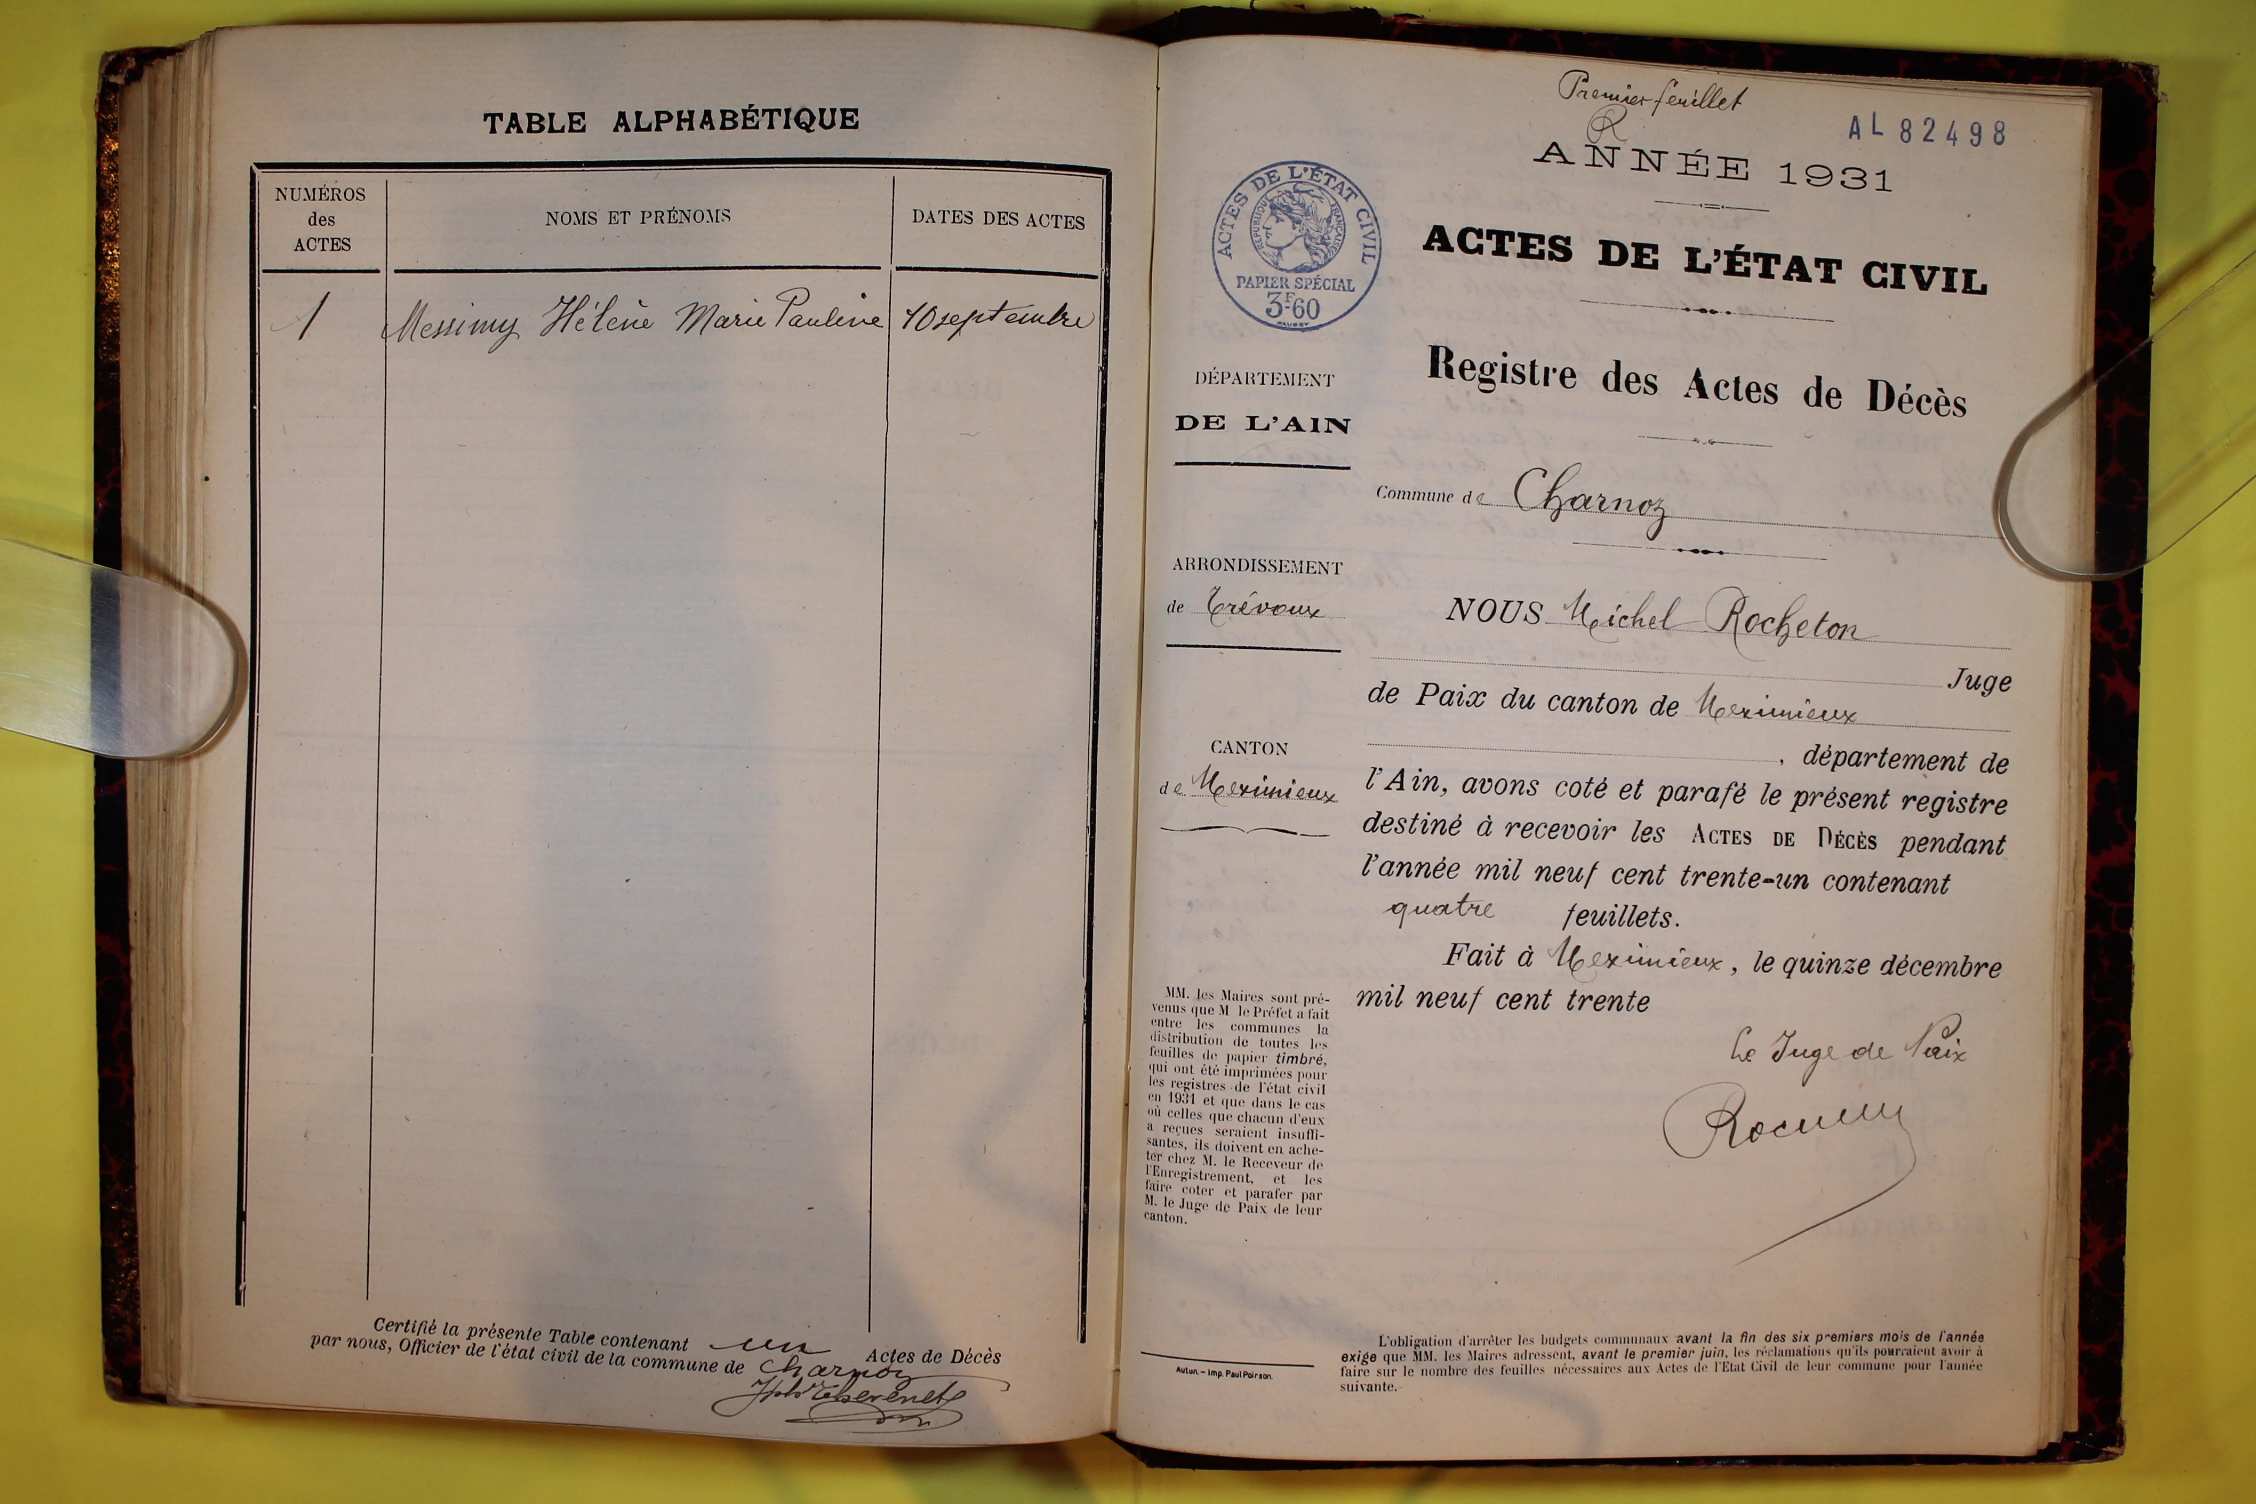 TABLE ALPHABÉTIQUE
NUMÉROS
des
ACTES
NOMS ET PRÉNOMS
DATES DES ACTES
1
Messimy Hélène Marie Pauline
10 septembre
Certifié la présente Table contenant un Actes de Décès
par nous, Officier de l'état civil de la commune de Charnoz
Thevenet
Premier feuillet
R
AL 82498
ANNÉE 1931
ACTES DE L'ÉTAT CIVIL
RÉPUBLIQUE FRANÇAISE
PAPIER SPÉCIAL
3F.60
ACTES DE L'ÉTAT CIVIL
Registre des Actes de Décès
DÉPARTEMENT
DE L'AIN
Commune de Charnoz
ARRONDISSEMENT
de Trévoux
CANTON
de Meximieux
NOUS Michel Rocheton
Juge
de Paix du canton de Meximieux
, département de
l'Ain, avons coté et parafé le présent registre
destiné à recevoir les ACTES DE DÉCÈS pendant
l'année mil neuf cent trente-un contenant
quatre feuillets.
Fait à Meximieux, le quinze décembre
mil neuf cent trente
Le Juge de Paix
MM. les Maires sont pré-
venus que M le Préfet a fait
entre les communes la
distribution de toutes les
feuilles de papier timbré,
qui ont été imprimées pour
les registres de l'état civil
en 1931 et que dans le cas
où celles que chacun d'eux
a reçues seraient insuffi-
santes, ils doivent en ache-
ter chez M. le Receveur de
l'Enregistrement, et les
faire coter et parafer par
M. le Juge de Paix de leur
canton.
Autun. – Imp. Paul Poirson.
L'obligation d'arrêter les budgets communaux avant la fin des six premiers mois de l'année
exige que MM. les Maires adressent, avant le premier juin, les réclamations qu'ils pourraient avoir à
faire sur le nombre des feuilles nécessaires aux Actes de l'Etat Civil de leur commune pour l'année
suivante.